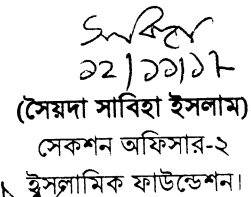 সাবিহা
১২/১১/১৮
(সৈয়দা সাবিহা ইসলাম)
সেকশন অফিসার-২
ইসলামিক ফাউন্ডেশন।